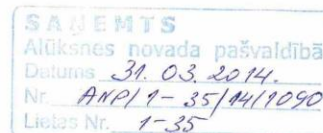 SAŅEMTS
Alūksnes novada pašvaldībā
Datums 31. 03. 2014.
Nr. ANP/1-35/14/1090
Lietas Nr. 1-35